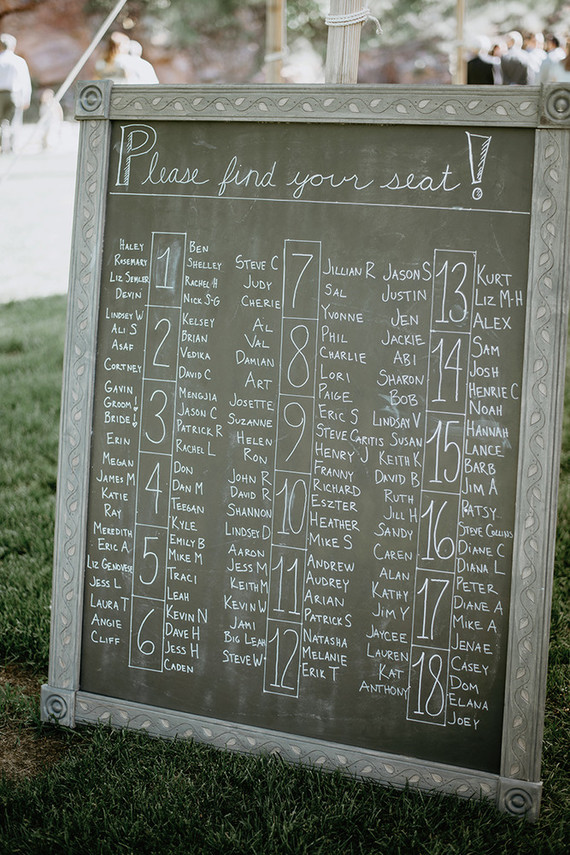 Please find your seat!
HALEY
ROSEMARY
LIZ SEMLER
DEVIN
1
BEN
SHELLEY
RACHEL H
NICK S-G
LINDSEY W
ALI S
ASAF
CORTNEY
2
KELSEY
BRIAN
VEDIKA
DAVID C
GAVIN
GROOM!
BRIDE!
ERIN
3
MENGJIA
JASON C
PATRICK R
RACHEL L
MEGAN
JAMES M
KATIE
RAY
4
DON
DAN M
TEEGAN
KYLE
MEREDITH
ERIC A
LIZ GENOVESE
JESS L
5
EMILY B
MIKE M
TRACI
LEAH
LAURA T
ANGIE
CLIFF
6
KEVIN N
DAVE H
JESS H
CADEN
STEVE C
JUDY
CHERIE
7
JILLIAN R
SAL
YVONNE
AL
VAL
DAMIAN
ART
8
PHIL
CHARLIE
LORI
PAIGE
JOSETTE
SUZANNE
HELEN
RON
9
ERIC S
STEVE CARITIS
HENRY J
FRANNY
JOHN R
DAVID R
SHANNON
LINDSEY D
10
RICHARD
ESZTER
HEATHER
MIKE S
AARON
JESS M
KEITH M
KEVIN W
11
ANDREW
AUDREY
ARIAN
PATRICK S
JAMI
BIG LEAH
STEVE W
12
NATASHA
MELANIE
ERIK T
JASON S
JUSTIN
JEN
13
KURT
LIZ M-H
ALEX
JACKIE
ABI
SHARON
BOB
14
SAM
JOSH
HENRIE C
NOAH
LINDSAY V
SUSAN
KEITH K
DAVID B
15
HANNAH
LANCE
BARB
JIM A
RUTH
JILL H
SANDY
CAREN
16
PATSY
STEVE COLLINS
DIANE C
DIANA L
ALAN
KATHY
JIM Y
17
PETER
DIANE A
MIKE A
JENAE
JAYCEE
LAUREN
KAT
ANTHONY
18
CASEY
DOM
ELANA
JOEY